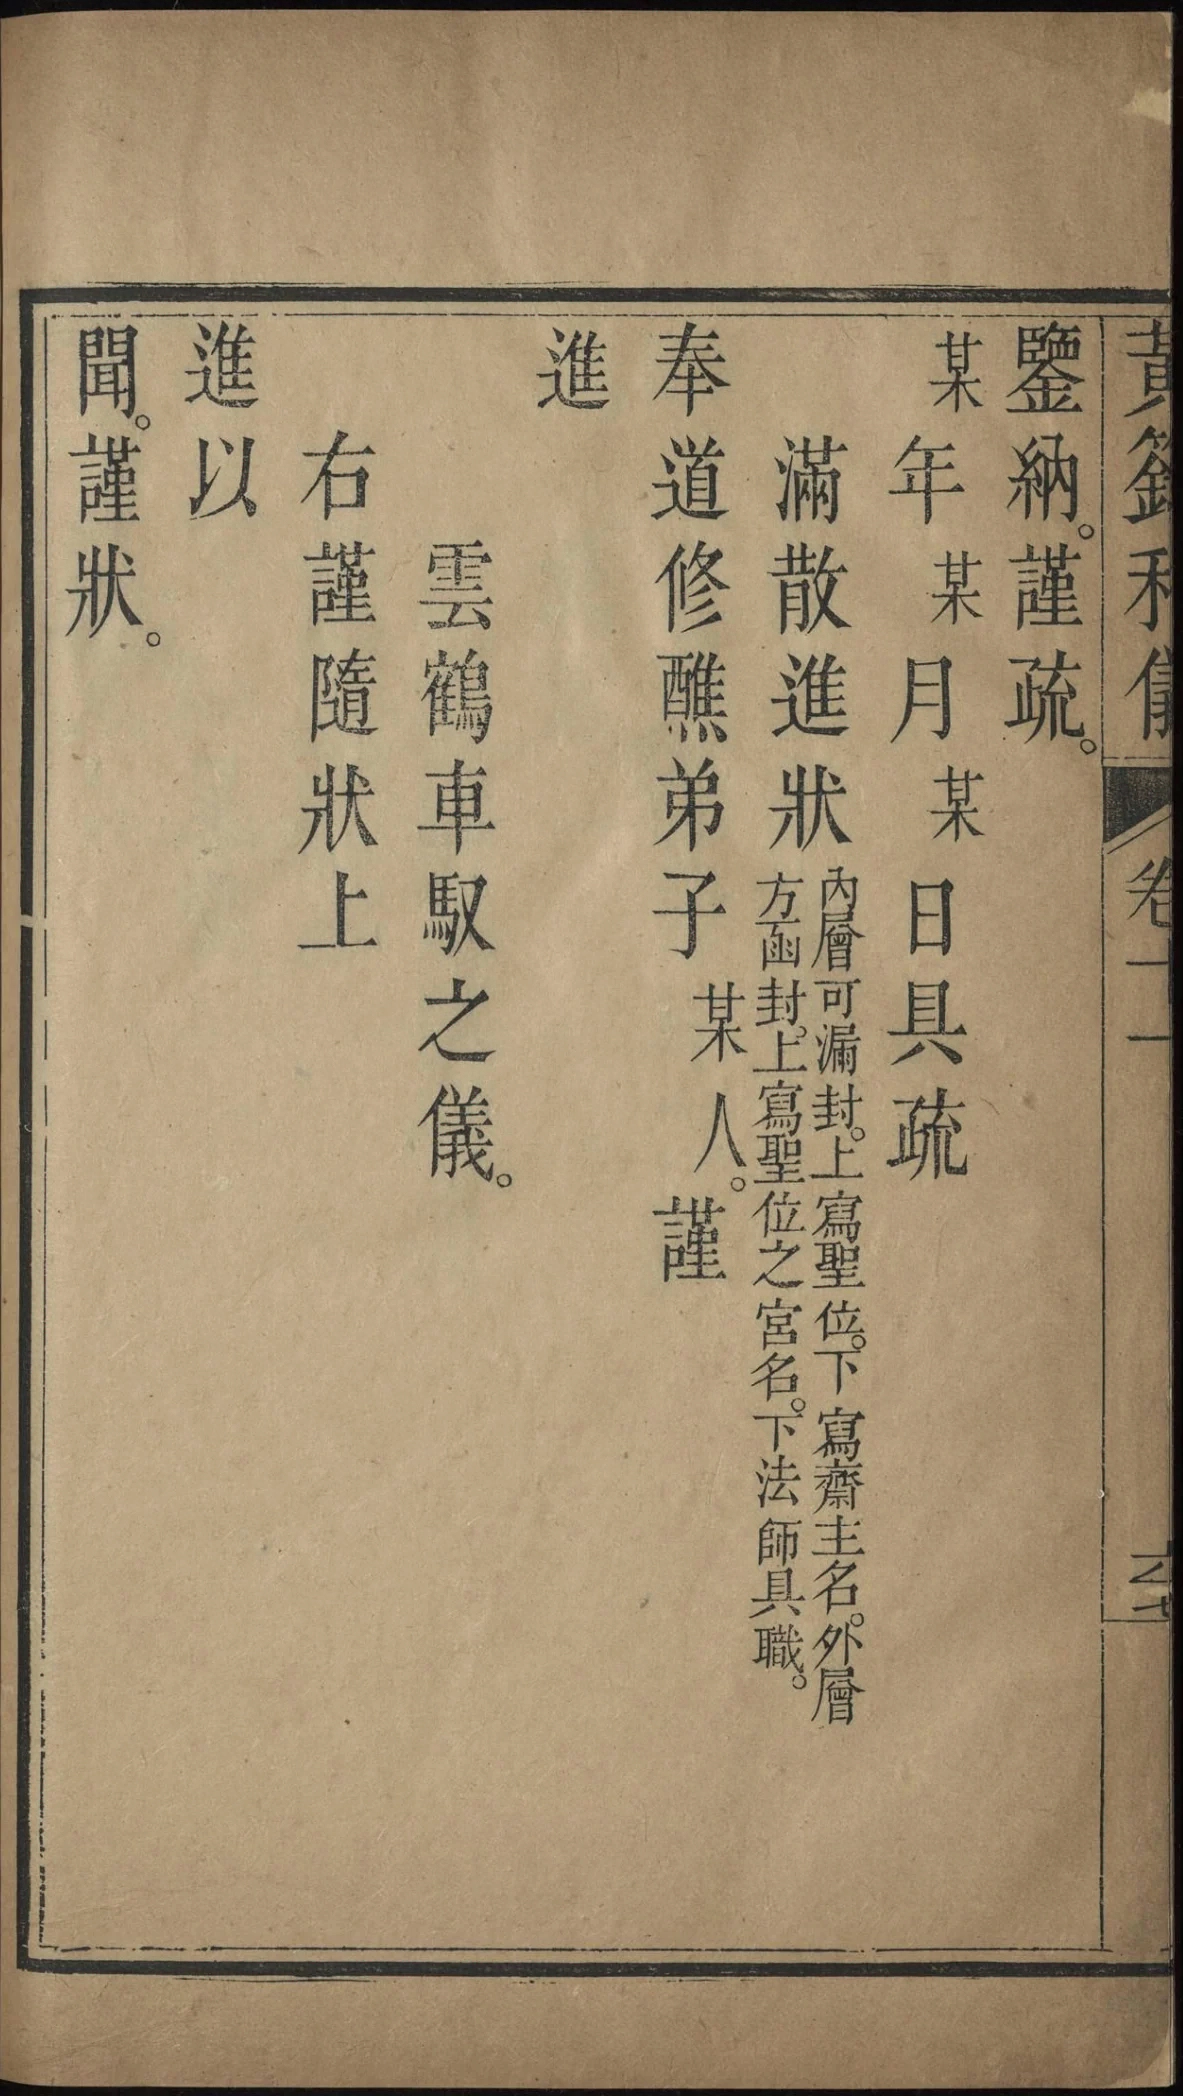 黃籙科儀
卷
鑒納。謹疏。
某年某月某日具疏
滿散進狀
內層可漏封。上寫聖位。下寫齋主名。外層
方函封。上寫聖位之宮名。下法師具職。
奉道修醮弟子某人。謹
進
雲鶴車馭之儀。
右謹隨狀上
進以
聞。謹狀。